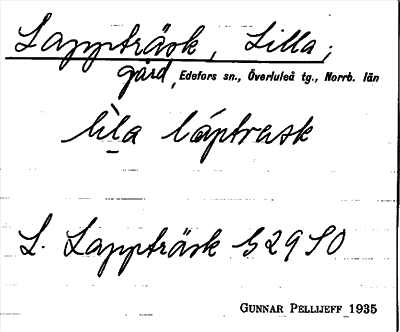 Lappträsk, Lilla;
gård, Edefors sn., Överluleå tg., Norrb. län
li̲la láptrask
L. Lappträsk G29 SO
GUNNAR PELLIJEFF 1935